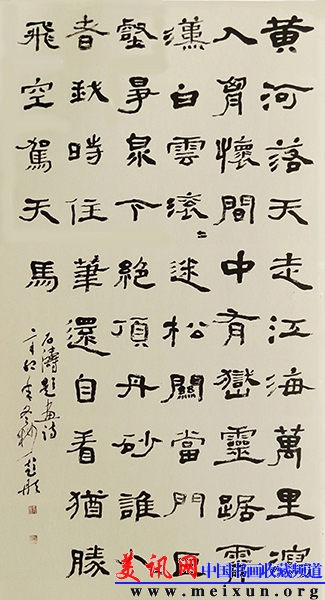 黄河落天走江海萬里瀉
入胷懷間中有嶽靈踞霄
漢白雲滚〻迷松關當門巨
壑爭泉下絕頂丹砂誰
時住筆還自看猶勝
飛空駕天馬
石濤題畫詩
美讯网
中国书画收藏频道
www.meixun.org